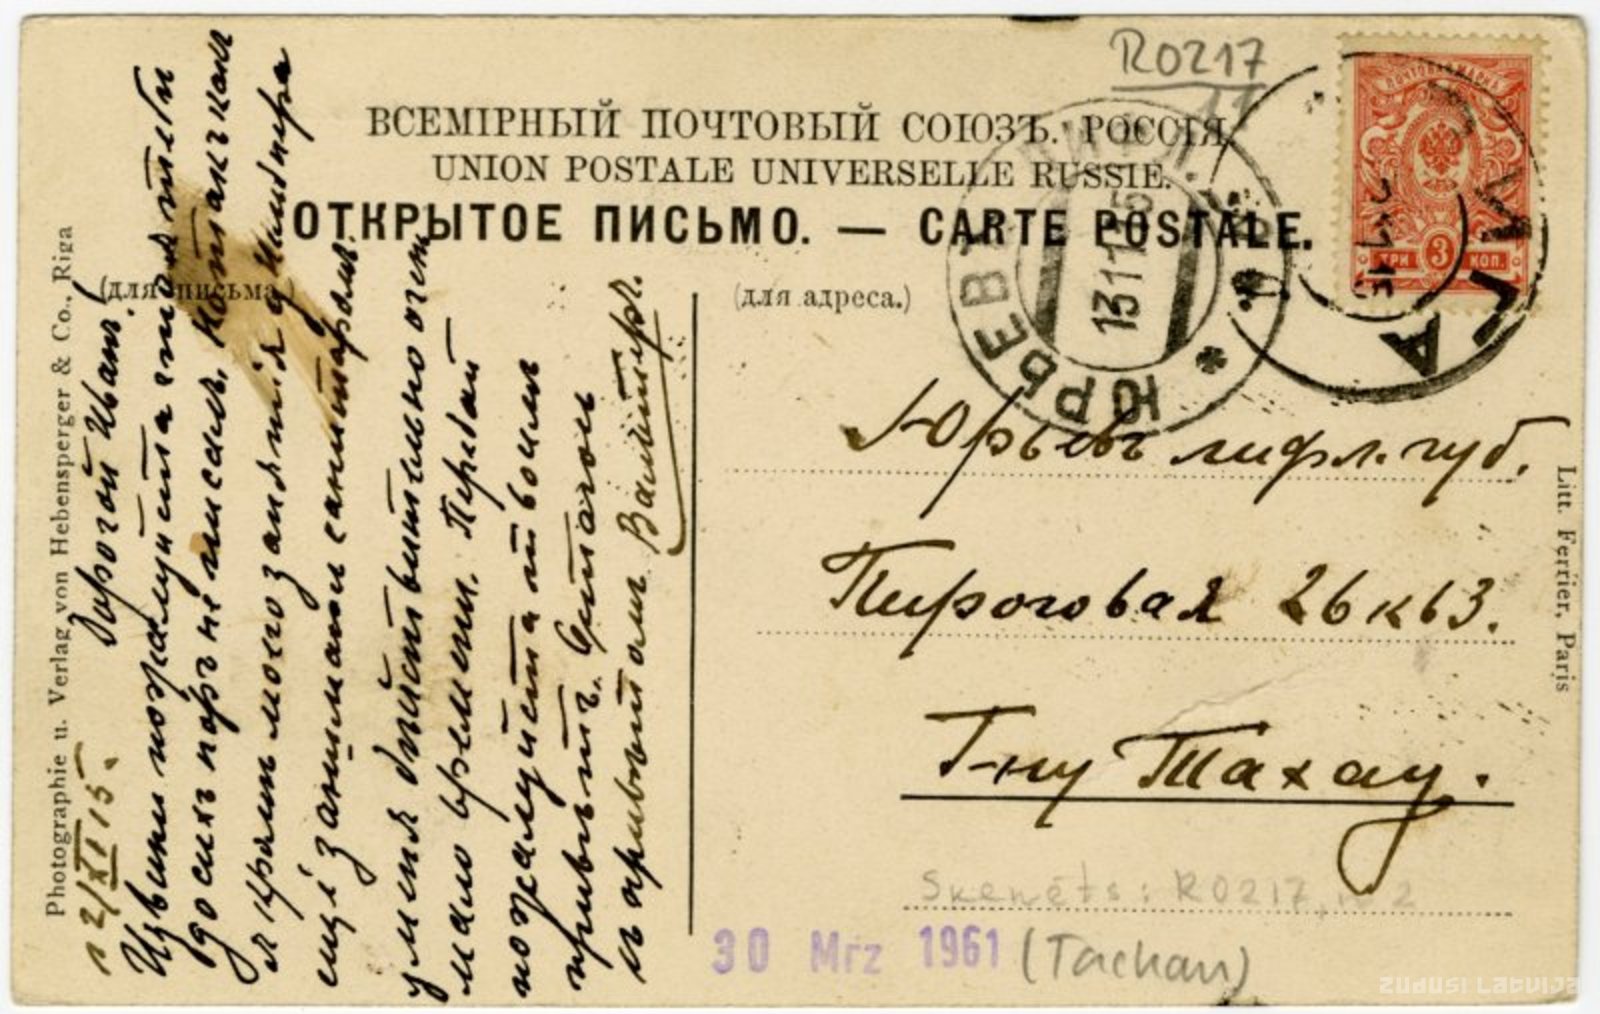 R0217
11
ВСЕМІРНЫЙ ПОЧТОВЫЙ СОЮЗЪ. РОССІЯ.
UNION POSTALE UNIVERSELLE RUSSIE.
ОТКРЫТОЕ ПИСЬМО. — CARTE POSTALE.
(для письма.)
(для адреса.)
ПОЧТОВАЯ МАРКА
ТРИ 3 КОП.
ЮРЬЕВЪ
13 11 15
Photographie u. Verlag von Hebensperger & Co., Riga
12/XI 15.
Дорогой Иванъ!
Извини пожалуйста что я тебѣ
до сихъ поръ не писалъ. Но такъ какъ
я кромѣ много занятія у
еще занимаюсь санитаромъ
у меня дѣйствительно очень
мало времени. Передай
пожалуйста твоимъ
привѣтъ. Остаюсь
съ привѣтомъ Вальтеръ.
Юрьевъ лифл. губ.
Пироговая 26 кв 3.
Г-ну Тахау.
Skenēts: R0217, 2
30 Mrz 1961 (Tachau)
Litt. Ferrier, Paris
zudusi Latvija